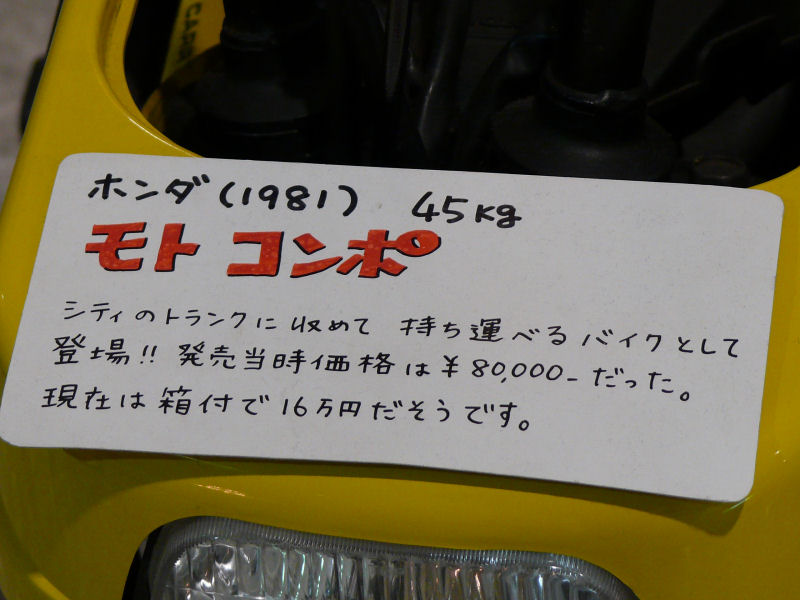 ホンダ(1981) 45kg
モト コンポ
シティのトランクに収めて 持ち運べるバイクとして
登場!! 発売当時価格は¥80,000-だった。
現在は箱付で16万円だそうです。